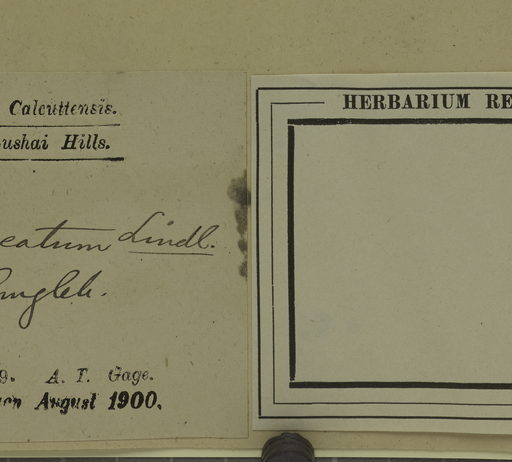 Calcuttensis.
ushai Hills.
eatum Lindl.
ungleh.
9. A. T. Gage.
August 1900.
HERBARIUM RE